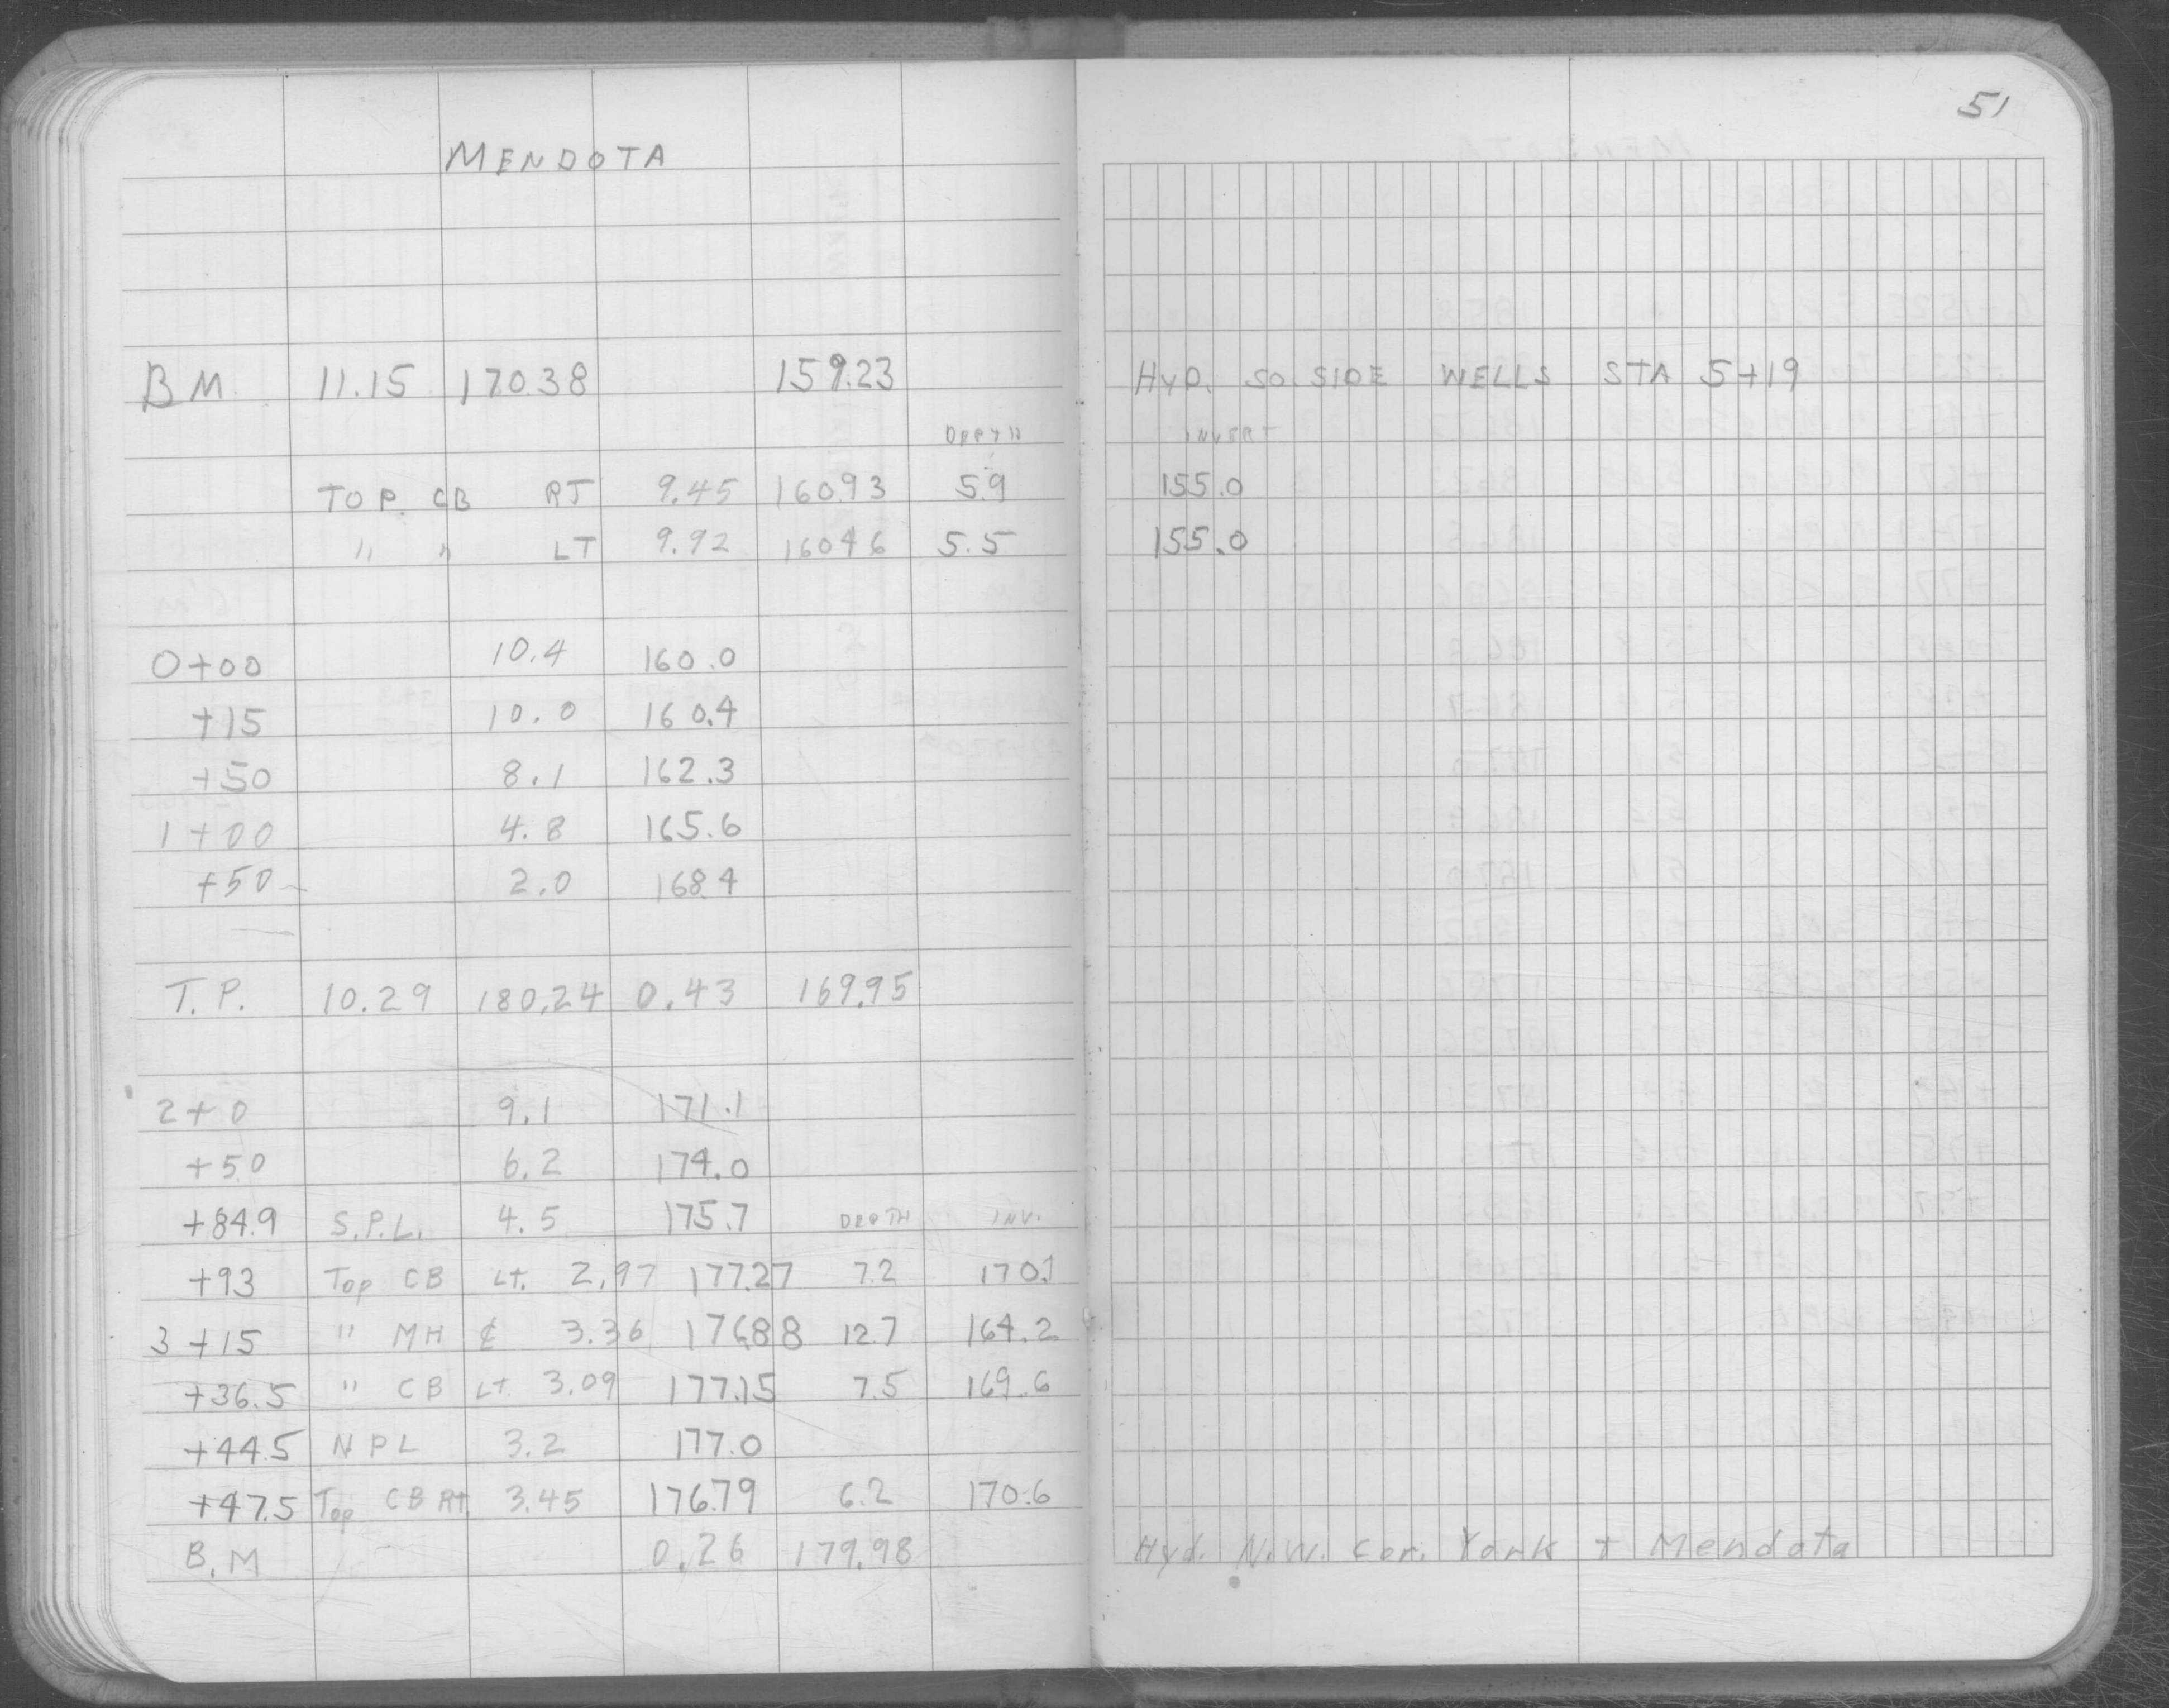 51
MENDOTA
BM 11.15 170.38 159.23 HYD. SO. SIDE WELLS STA 5+19
DEPTH INVERT
TOP. CB RT 9.45 160.93 5.9 155.0
" " LT 9.92 160.46 5.5 155.0
0+00 10.4 160.0
+15 10.0 160.4
+50 8.1 162.3
1+00 4.8 165.6
+50 2.0 168.4
T.P. 10.29 180.24 0.43 169.95
2+0 9.1 171.1
+50 6.2 174.0
+84.9 S.P.L. 4.5 175.7 DEPTH INV.
+93 Top CB Lt. 2.97 177.27 7.2 170.1
3+15 " MH ₵ 3.36 176.88 12.7 164.2
+36.5 " CB LT. 3.09 177.15 7.5 169.6
+44.5 N P L 3.2 177.0
+47.5 Top CB Rt. 3.45 176.79 6.2 170.6
B.M 0.26 179.98 Hyd. N.W. Cor. York + Mendota